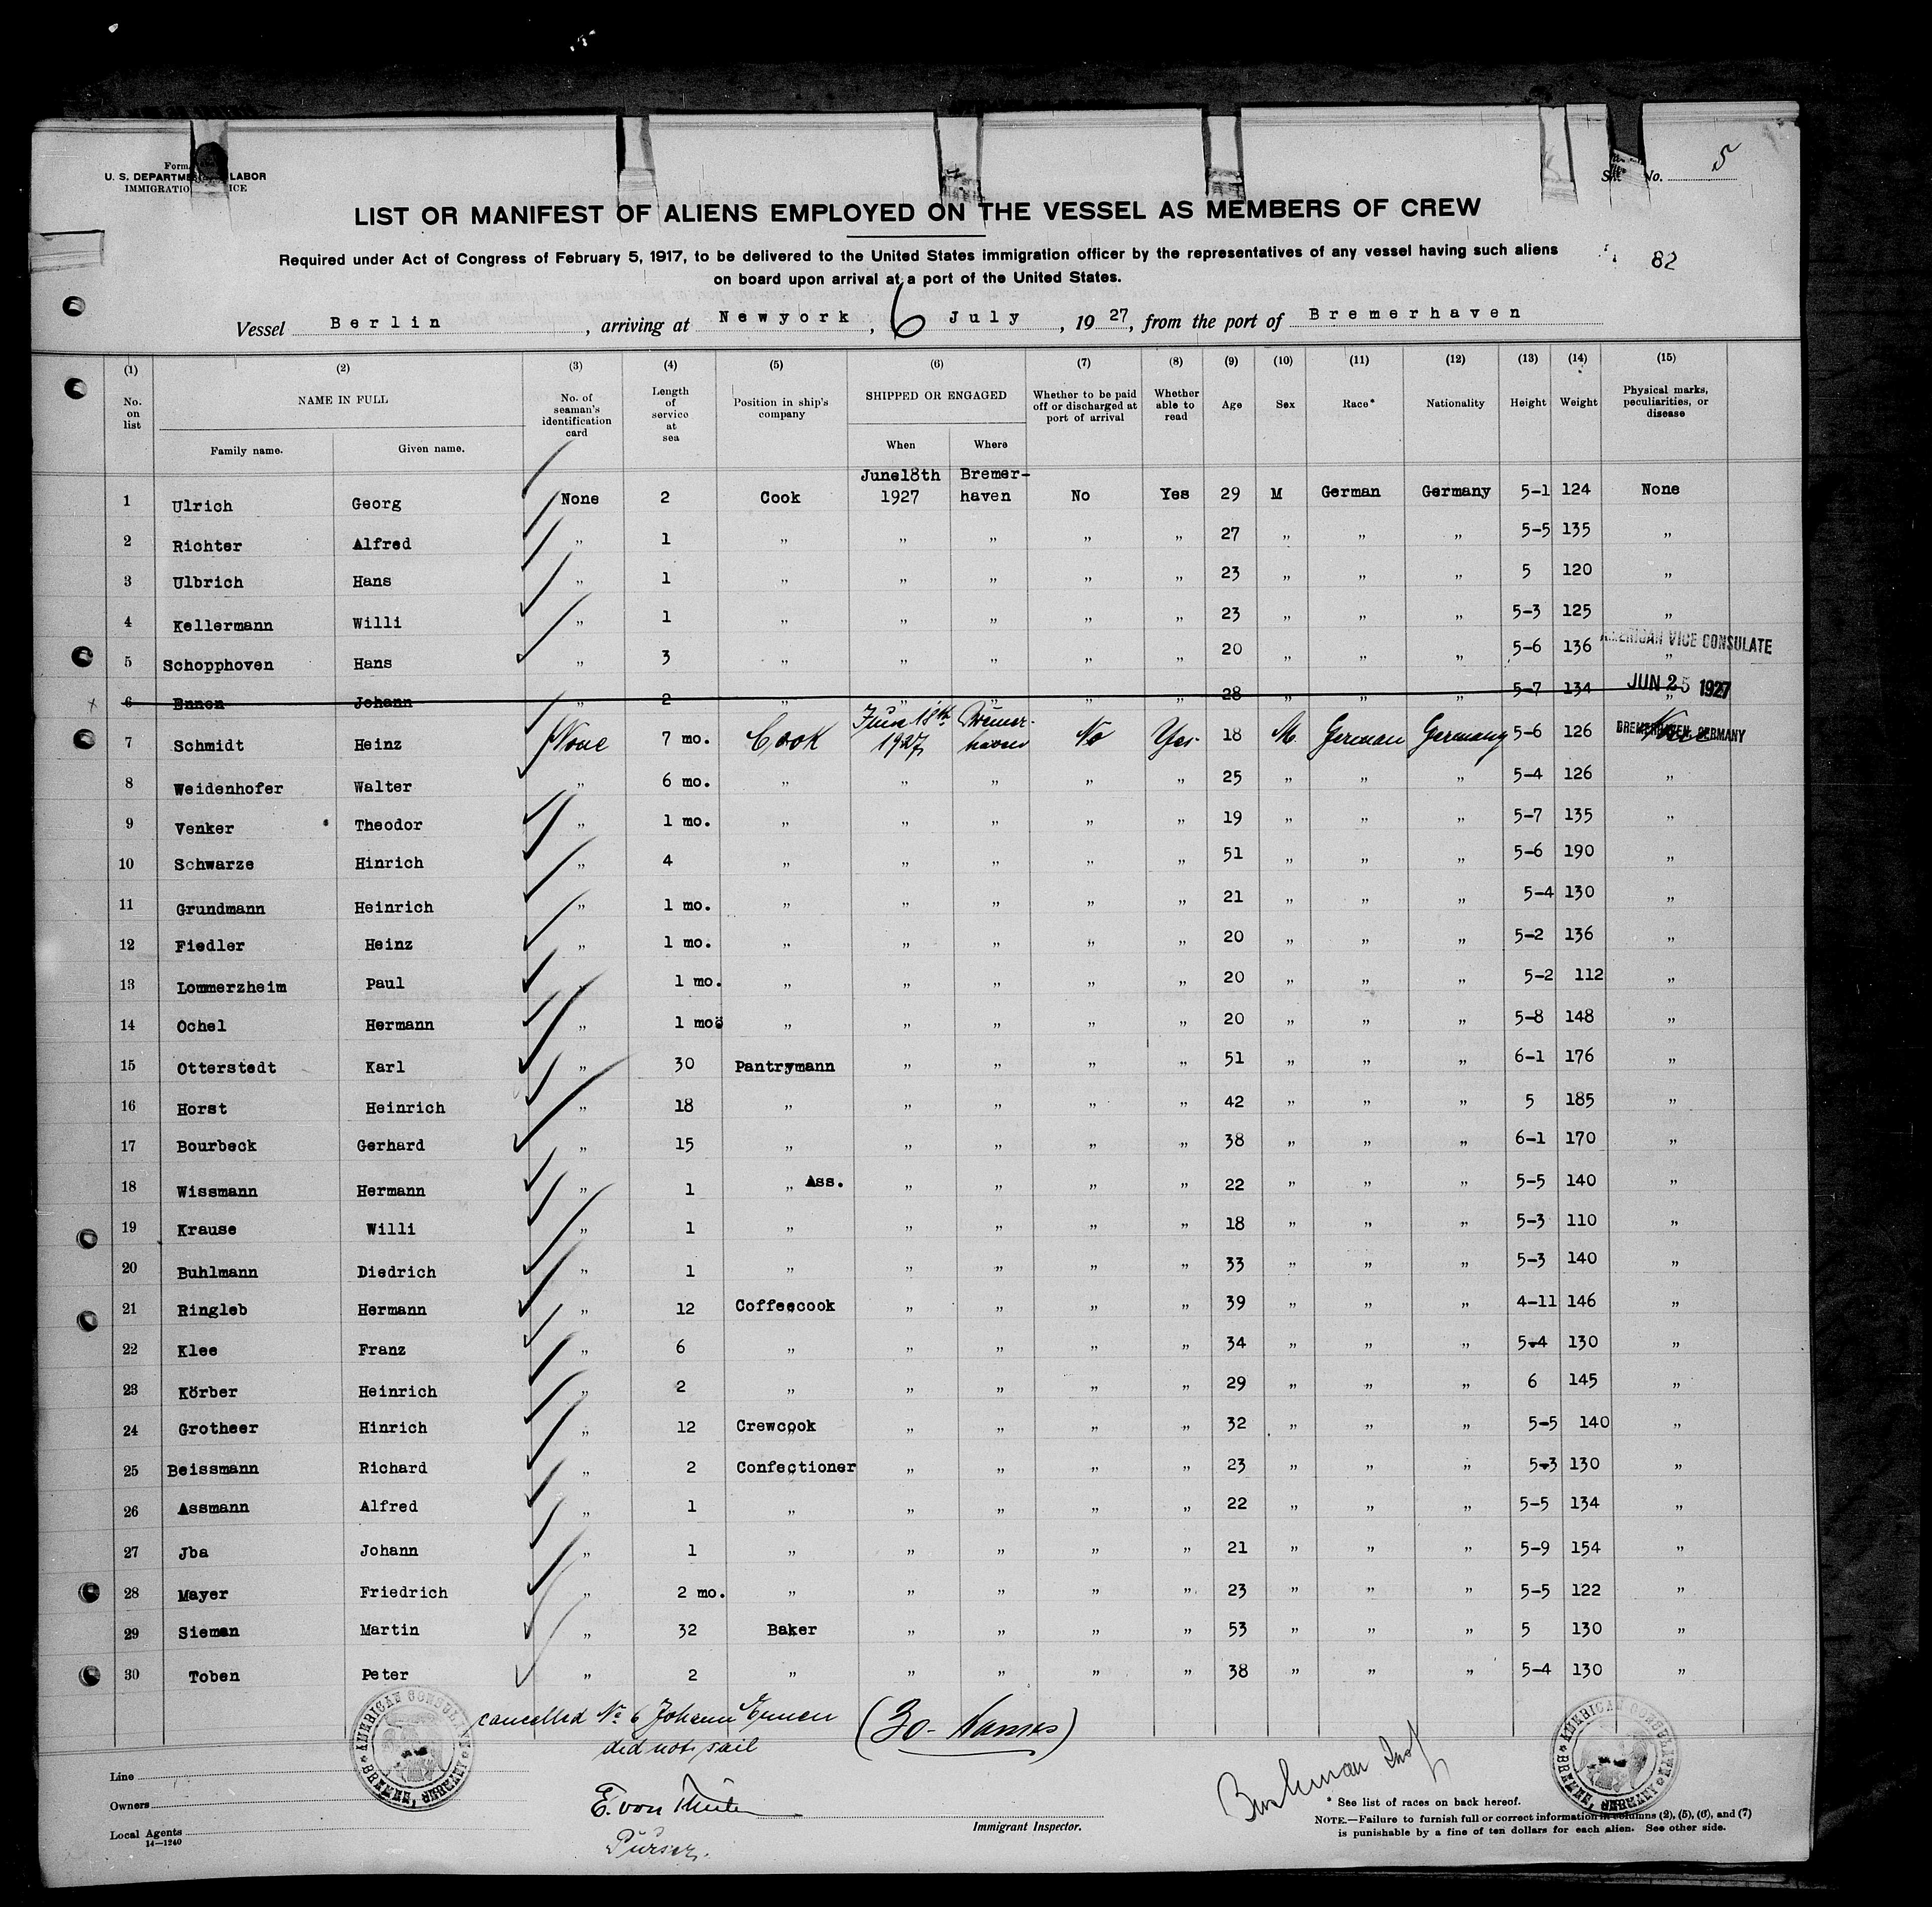 Form
U. S. DEPARTMENT LABOR
IMMIGRATION
No. 5
LIST OR MANIFEST OF ALIENS EMPLOYED ON THE VESSEL AS MEMBERS OF CREW
Required under Act of Congress of February 5, 1917, to be delivered to the United States immigration officer by the representatives of any vessel having such aliens
on board upon arrival at a port of the United States.
82
Vessel Berlin, arriving at Newyork, 6 July, 1927, from the port of Bremerhaven
(1) (2) (3) (4) (5) (6) (7) (8) (9) (10) (11) (12) (13) (14) (15)
No. on list NAME IN FULL No. of seaman's identification card Length of service at sea Position in ship's company SHIPPED OR ENGAGED Whether to be paid off or discharged at port of arrival Whether able to read Age Sex Race* Nationality Height Weight Physical marks, peculiarities, or disease
Family name. Given name. When Where
1 Ulrich Georg None 2 Cook June18th 1927 Bremer-haven No Yes 29 M German Germany 5-1 124 None
2 Richter Alfred „ 1 „ „ „ „ „ 27 „ „ „ 5-5 135 „
3 Ulbrich Hans „ 1 „ „ „ „ „ 23 „ „ „ 5 120 „
4 Kellermann Willi „ 1 „ „ „ „ „ 23 „ „ „ 5-3 125 „
AMERICAN VICE CONSULATE
5 Schopphoven Hans „ 3 „ „ „ „ „ 20 „ „ „ 5-6 136 „
JUN 25 1927
6 Ennen Johann „ 2 „ „ „ „ „ 28 „ „ „ 5-7 134 „
BREMERHAVEN, GERMANY
7 Schmidt Heinz None 7 mo. Cook June 18th 1927 Bremer-haven No Yes 18 M. German Germany 5-6 126 None
8 Weidenhofer Walter „ 6 mo. „ „ „ „ „ 25 „ „ „ 5-4 126 „
9 Venker Theodor „ 1 mo. „ „ „ „ „ 19 „ „ „ 5-7 135 „
10 Schwarze Hinrich „ 4 „ „ „ „ „ 51 „ „ „ 5-6 190 „
11 Grundmann Heinrich „ 1 mo. „ „ „ „ „ 21 „ „ „ 5-4 130 „
12 Fiedler Heinz „ 1 mo. „ „ „ „ „ 20 „ „ „ 5-2 136 „
13 Lommerzheim Paul „ 1 mo. „ „ „ „ „ 20 „ „ „ 5-2 112 „
14 Ochel Hermann „ 1 moö „ „ „ „ „ 20 „ „ „ 5-8 148 „
15 Otterstedt Karl „ 30 Pantrymann „ „ „ „ 51 „ „ „ 6-1 176 „
16 Horst Heinrich „ 18 „ „ „ „ „ 42 „ „ „ 5 185 „
17 Bourbeck Gerhard „ 15 „ „ „ „ „ 38 „ „ „ 6-1 170 „
18 Wissmann Hermann „ 1 „ Ass. „ „ „ „ 22 „ „ „ 5-5 140 „
19 Krause Willi „ 1 „ „ „ „ „ 18 „ „ „ 5-3 110 „
20 Buhlmann Diedrich „ 1 „ „ „ „ „ 33 „ „ „ 5-3 140 „
21 Ringleb Hermann „ 12 Coffeecook „ „ „ „ 39 „ „ „ 4-11 146 „
22 Klee Franz „ 6 „ „ „ „ „ 34 „ „ „ 5-4 130 „
23 Körber Heinrich „ 2 „ „ „ „ „ 29 „ „ „ 6 145 „
24 Grotheer Hinrich „ 12 Crewcook „ „ „ „ 32 „ „ „ 5-5 140 „
25 Beissmann Richard „ 2 Confectioner „ „ „ „ 23 „ „ „ 5-3 130 „
26 Assmann Alfred „ 1 „ „ „ „ „ 22 „ „ „ 5-5 134 „
27 Jba Johann „ 1 „ „ „ „ „ 21 „ „ „ 5-9 154 „
28 Mayer Friedrich „ 2 mo. „ „ „ „ „ 23 „ „ „ 5-5 122 „
29 Siemen Martin „ 32 Baker „ „ „ „ 53 „ „ „ 5 130 „
30 Toben Peter „ 2 „ „ „ „ „ 38 „ „ „ 5-4 130 „
cancelled No 6 Johann Ennen (30 - Names)
did not sail
AMERICAN CONSULATE BREMEN, GERMANY
AMERICAN CONSULATE BREMEN, GERMANY
Line
Owners
Local Agents
14—1240
E. von
Purser.
Immigrant Inspector.
* See list of races on back hereof.
NOTE.—Failure to furnish full or correct information in columns (2), (5), (6), and (7)
is punishable by a fine of ten dollars for each alien. See other side.